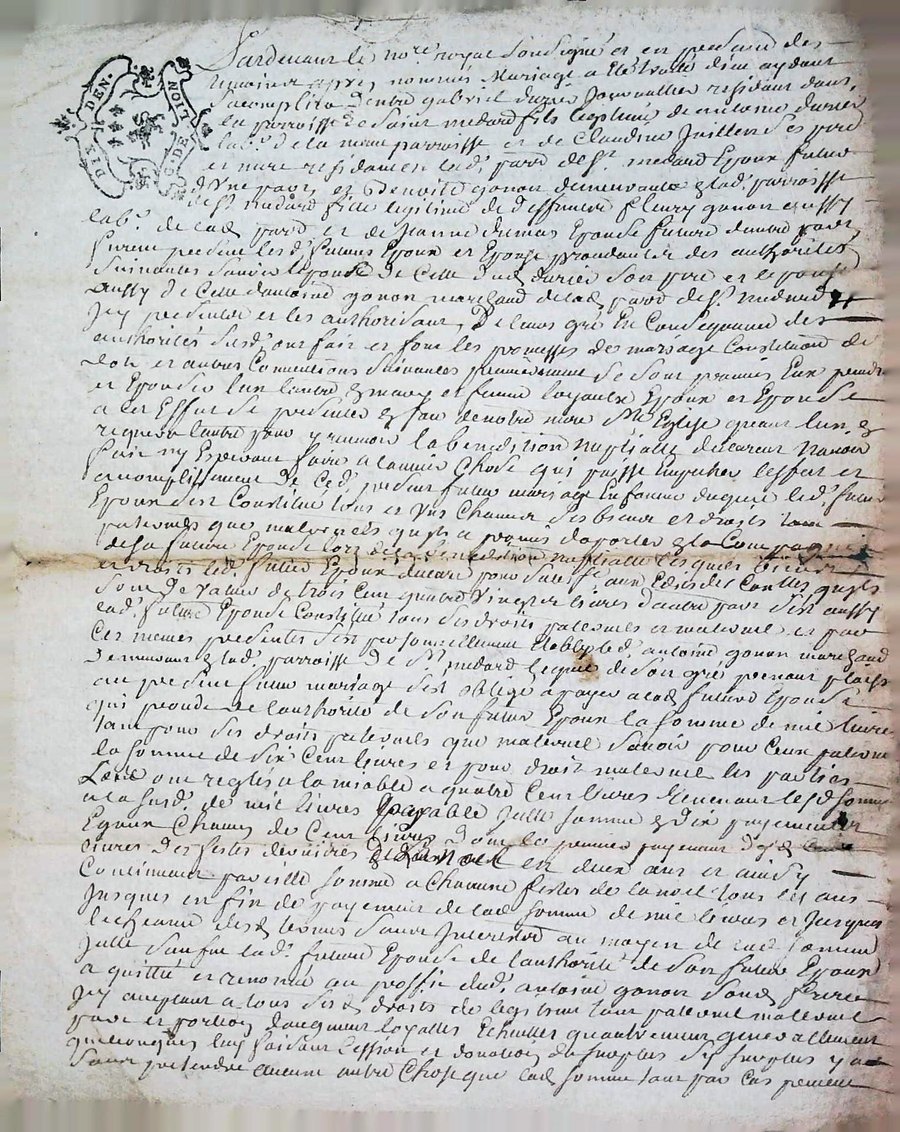 DIX DEN. G. DE LION
Pardevant le no.re royal soussigné et en presence des
temoins apres nommés Mariage a ete traité dieu aydant
sacomplira Dentre gabriel durier Journallier residant dans
la parroisse de Saint medard fils legitime de antoine durier
lab.r de la meme parroisse et de Claudine Juillen ses pere
et mere residants en lad. parr. de S.t medard Epoux futur
D'Vne part, et Benoite gonon demeurante en lad. parroisse
de S.t medard fille legitime de deffunct fleury gonon aussy
lab.r de lad. parr. et de Jeanne dumas Epouse future dautre part
furent presents lesd. futurs Epoux et Epouse procedants des authorités
suivantes scavoir lepoux de Celle dud. durier son pere et lepouse
aussy de Celle dantoine gonon marchand de lad. parr. de S.t medard
Icy presents et les authorisant, De leurs gré En Consequence des
authorités susd. ont fait et font les promesses de mariage Constitution de
dote et autres Conventions suivantes premierement se sont promis Eux prendre
et Epouser lun lautre a mary et femme loyaux Epoux et Epouse
a Cet Effet se presenter en face de notre mere S.te Eglise quant lun en
requerra lautre pour y recevoir la benediction nuptialle declarent navoir
fait ny Esperant faire a lavenir Chose qui puisse empecher leffet et
acomplissement de Ced. present futur mariage En faveur duquel led. futur
Epoux sest Constitué tous et Vns Chacuns ses biens et droits tant
paternels que maternels quil a promis daporter en la Compagnie
de la future Epouse lors de la benediction nuptialle lesquels biens
et droits led. futur Epoux declare pour satisf.e aux Edits des Contles quils
sont de valeur de trois Cent quatre vingt livres dautre part sest aussy
lad. future Epouse Constitué tous ses droits paternels et maternels et par
Ces memes presentes sest personnellement Etably led. antoine gonon marchand
demeurant en lad. parroisse de S.t medard lequel de son gré prenant plaisir
au present futur mariage sest obligé a payer a lad. future Epouse
qui procede de lauthorité de son futur Epoux la somme de mil livres
tant pour ses droits paternels que maternels scavoir pour Ceux paternels
la somme de six Cent livres et pour droit maternels les parties
Lont reglés a la miable a quatre Cent livres revenant lesd. sommes
a la susd. de mil livres payable Icelle somme en dix payements
Egaux Chacun de Cent livres dont le premier payement
livres des festes dernieres de Noel en deux ans et ainsy
Continuer pareille somme a Chacune festes de la noel tous les ans
Jusques en fin de payement de lad. somme de mil livres et Jusques
lecheance desd. termes sans Interests au moyen de lad. somme
Icelle sauf lad. future Epouse de lauthorité de son futur Epoux
a quitté et renoncé au proffit dud. antoine gonon sond. frere
Icy acceptant a tous sesd. droits de legitime tant paternel maternel
part et portion daugment loyalles Echuttes quautrement generallement
quelconques luy faisant Cession et donation du surplus si surplus y a
sans pretendre aucune autre Chose que lad. somme tant par Cas present